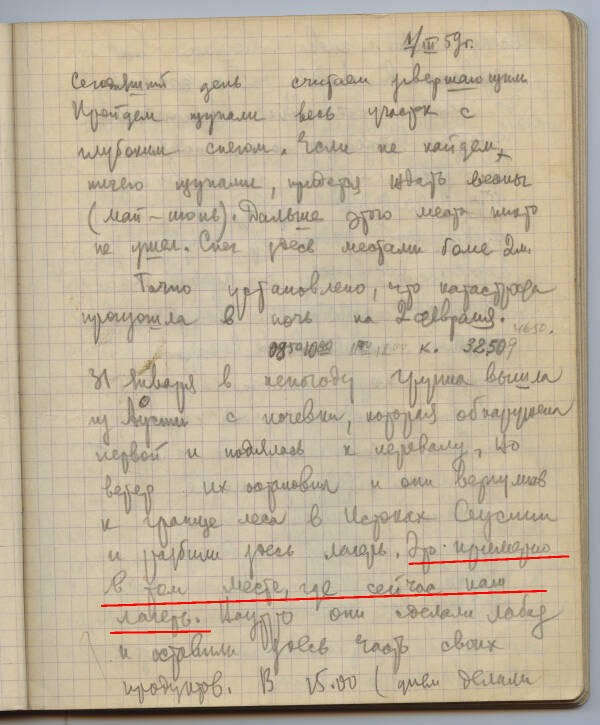 1/III 59г.
Сегодняшний день считаем завершающим.
Пройдем щупами весь участок с
глубоким снегом. Если не найдем
ничего щупами, придется ждать весны
(май – июнь). Дальше этого места никто
не ушел. Снег здесь местами более 2 м.
Точно установлено, что катастрофа
произошла в ночь на 2 февраля.
4650.
0850 1000 1100 1200 к. 32509
31 января в непогоду группа вышла
из Ауспии с ночевки, которая обнаружена
первой и поднялась к перевалу, но
ветер их остановил и они вернулись
к границе леса в истоках Ауспии
и разбили здесь лагерь. Это примерно
в том месте, где сейчас наш
лагерь. Наутро они сделали лабаз
и оставили здесь часть своих
продуктов. В 15.00 (днем делали